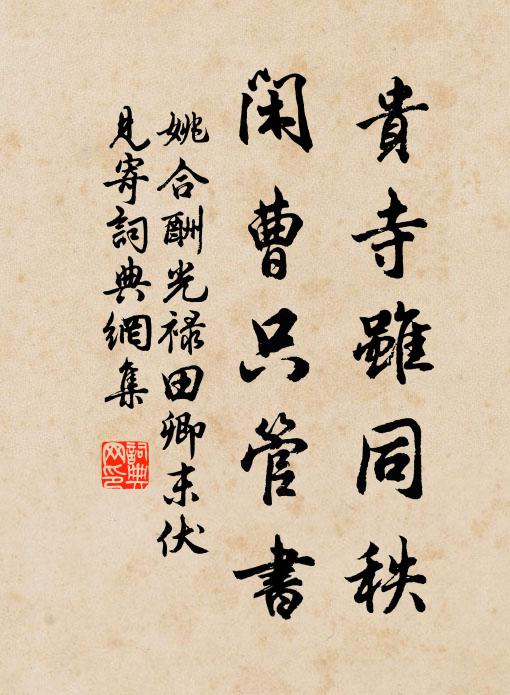 貴寺雖同秩
閑曹只管書
姚合酬光禄田卿末伏
見寄詞典網集
詞典
网印